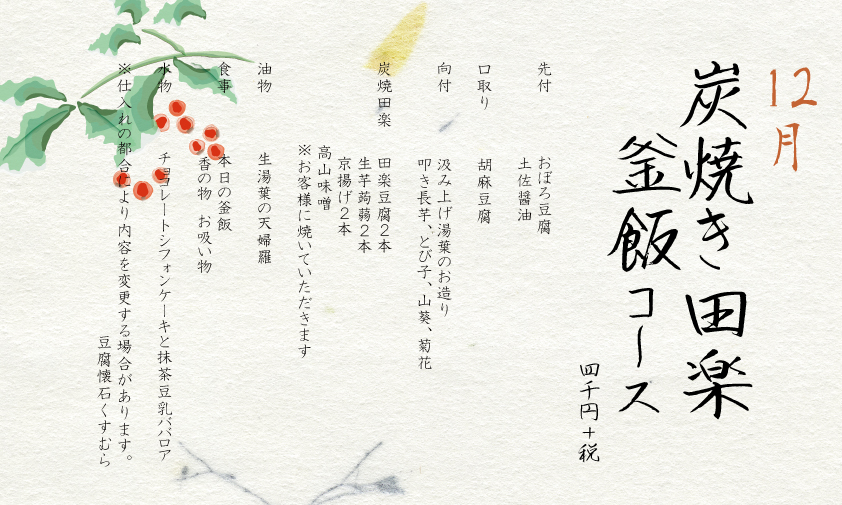 12月
炭焼き田楽
釜飯コース
四千円＋税
先付　おぼろ豆腐
土佐醤油
口取り　胡麻豆腐
向付　汲み上げ湯葉のお造り
叩き長芋、とび子、山葵、菊花
炭焼田楽　田楽豆腐２本
生芋蒟蒻２本
京揚げ２本
高山味噌
※お客様に焼いていただきます
油物　生湯葉の天婦羅
食事　本日の釜飯
香の物　お吸い物
水物　チョコレートシフォンケーキと抹茶豆乳ババロア
※仕入れの都合により内容を変更する場合があります。
豆腐懐石くすむら